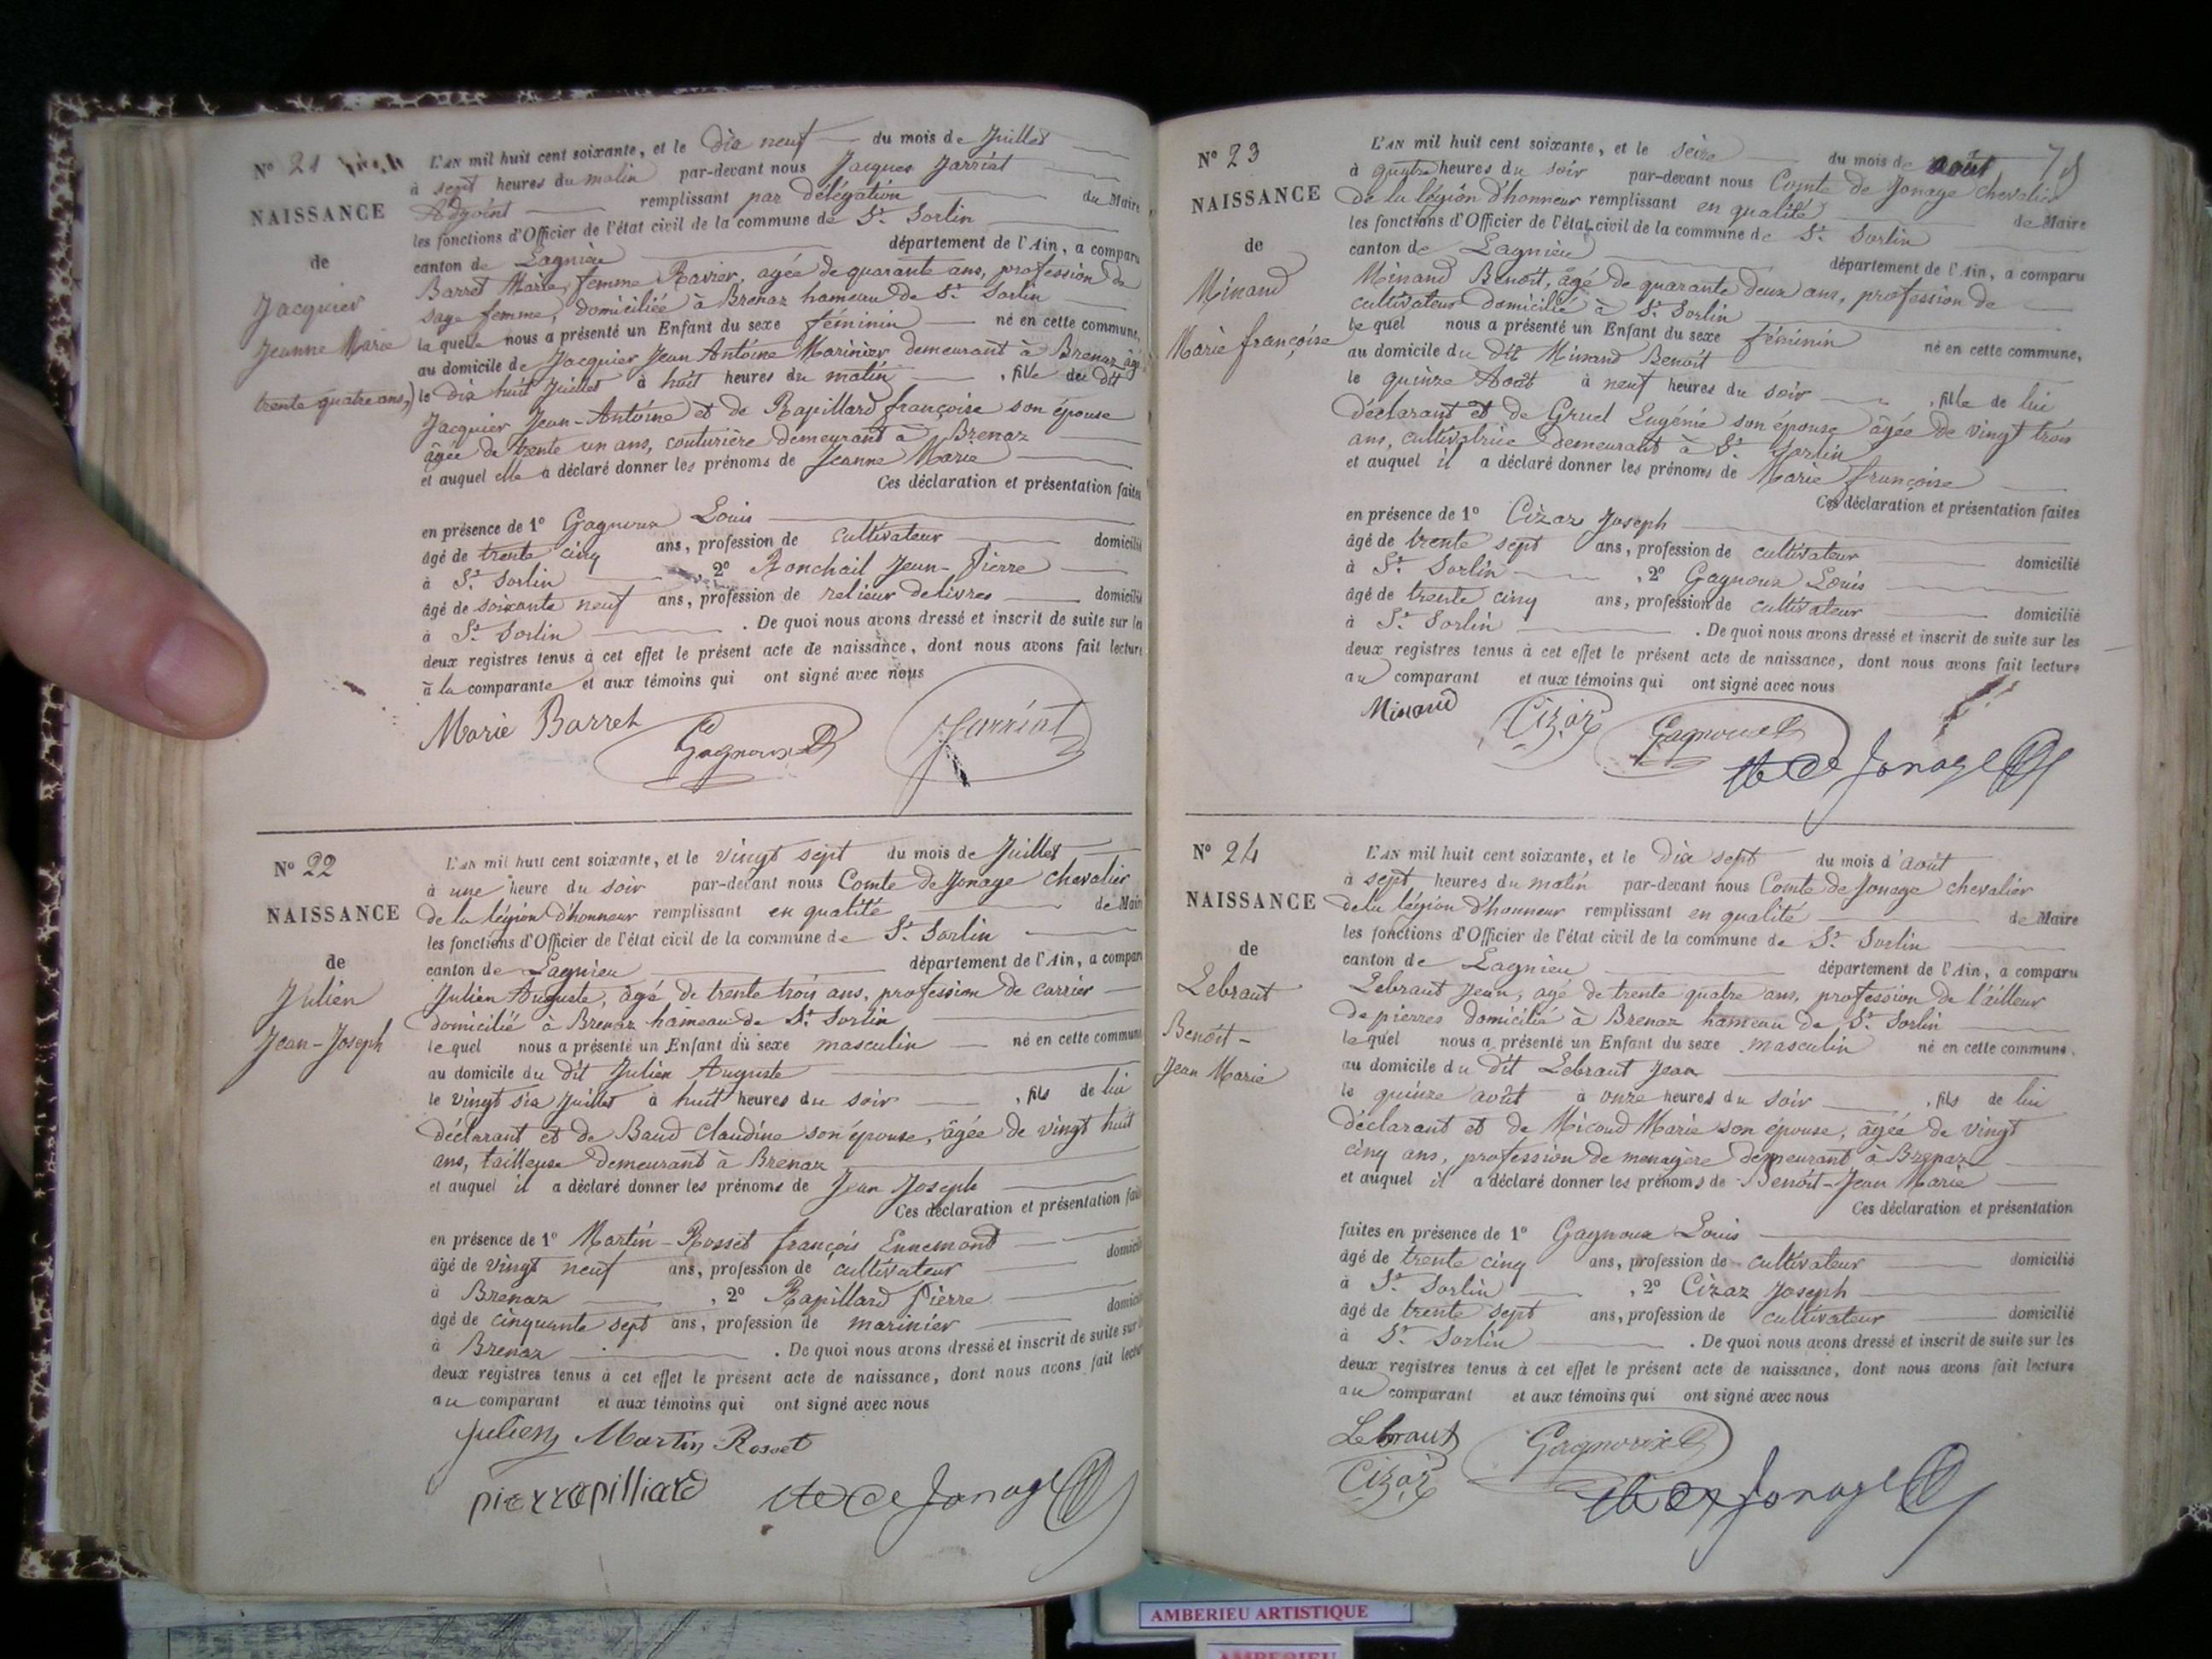 N° 21
NAISSANCE
de
Jacquier
Jeanne Marie
trente quatre ans,)
L'AN mil huit cent soixante, et le dix neuf du mois de Juillet
à sept heures du matin par-devant nous Jacques Jarriat
Adjoint remplissant par délégation du Maire
les fonctions d'Officier de l'état civil de la commune de St. Sorlin
canton de Lagnieu département de l'Ain, a comparu
Barret Marie, femme Ravier, agée de quarante ans, profession de
sage femme, domiciliée à Brenaz hameau de St. Sorlin
la quelle nous a présenté un Enfant du sexe féminin né en cette commune,
au domicile de Jacquier Jean Antoine Marinier demeurant à Brenaz âgé
le dix huit Juillet à huit heures du matin , fille du dit
Jacquier Jean-Antoine et de Rapillard françoise son épouse
âgée de trente un ans, couturière demeurant à Brenaz
et auquel elle a déclaré donner les prénoms de Jeanne Marie
Ces déclaration et présentation faites
en présence de 1° Gagnoux Louis
âgé de trente cinq ans, profession de cultivateur domicilié
à St. Sorlin , 2° Ronchail Jean-Pierre
âgé de soixante neuf ans, profession de relieur de livres domicilié
à St. Sorlin . De quoi nous avons dressé et inscrit de suite sur les
deux registres tenus à cet effet le présent acte de naissance, dont nous avons fait lecture
à la comparante et aux témoins qui ont signé avec nous
Marie Barret Gagnoux Jarriat
N° 22
NAISSANCE
de
Julien
Jean-Joseph
L'AN mil huit cent soixante, et le vingt sept du mois de Juillet
à une heure du soir par-devant nous Comte de Jonage chevalier
de la légion d'honneur remplissant en qualité de Maire
les fonctions d'Officier de l'état civil de la commune de St. Sorlin
canton de Lagnieu département de l'Ain, a comparu
Julien Auguste, âgé de trente trois ans, profession de carrier
domicilié à Brenaz hameau de St. Sorlin
le quel nous a présenté un Enfant du sexe masculin né en cette commune
au domicile du dit Julien Auguste
le vingt six Juillet à huit heures du soir , fils de lui
déclarant et de Baud Claudine son épouse, âgée de vingt huit
ans, tailleuse demeurant à Brenaz
et auquel il a déclaré donner les prénoms de Jean Joseph
Ces déclaration et présentation faites
en présence de 1° Martin-Rosset françois Ennemond
âgé de vingt neuf ans, profession de cultivateur domicilié
à Brenaz , 2° Rapillard Pierre
âgé de cinquante sept ans, profession de marinier domicilié
à Brenaz . De quoi nous avons dressé et inscrit de suite sur les
deux registres tenus à cet effet le présent acte de naissance, dont nous avons fait lecture
au comparant et aux témoins qui ont signé avec nous
Julien Martin Rosset
pierrapilliard cte de Jonage
75
N° 23
NAISSANCE
de
Minand
Marie françoise
L'AN mil huit cent soixante, et le seize du mois de août
à quatre heures du soir par-devant nous Comte de Jonage chevalier
de la légion d'honneur remplissant en qualité de Maire
les fonctions d'Officier de l'état civil de la commune de St. Sorlin
canton de Lagnieu département de l'Ain, a comparu
Minand Benoit, âgé de quarante deux ans, profession de
cultivateur domicilié à St. Sorlin
le quel nous a présenté un Enfant du sexe féminin né en cette commune,
au domicile du dit Minand Benoit
le quinze Août à neuf heures du soir , fille de lui
déclarant et de Gruel Eugénie son épouse âgée de vingt trois
ans, cultivatrice demeurant à St. Sorlin
et auquel il a déclaré donner les prénoms de Marie françoise
Ces déclaration et présentation faites
en présence de 1° Cizaz Joseph
âgé de trente sept ans, profession de cultivateur domicilié
à St. Sorlin , 2° Gagnoux Louis
âgé de trente cinq ans, profession de cultivateur domicilié
à St. Sorlin . De quoi nous avons dressé et inscrit de suite sur les
deux registres tenus à cet effet le présent acte de naissance, dont nous avons fait lecture
au comparant et aux témoins qui ont signé avec nous
Minand Cizaz Gagnoux
cte de Jonage
N° 24
NAISSANCE
de
Lebraut
Benoit-
Jean Marie
L'AN mil huit cent soixante, et le dix sept du mois d'août
à sept heures du matin par-devant nous Comte de Jonage chevalier
de la légion d'honneur remplissant en qualité de Maire
les fonctions d'Officier de l'état civil de la commune de St. Sorlin
canton de Lagnieu département de l'Ain, a comparu
Lebraut Jean, agé de trente quatre ans, profession de tailleur
de pierres domicilié à Brenaz hameau de St. Sorlin
le quel nous a présenté un Enfant du sexe masculin né en cette commune.
au domicile du dit Lebraut Jean
le quinze août à onze heures du soir , fils de lui
déclarant et de Micoud Marie son épouse, âgée de vingt
cinq ans, profession de menagère demeurant à Brenaz
et auquel il a déclaré donner les prénoms de Benoit-Jean Marie
Ces déclaration et présentation
faites en présence de 1° Gagnoux Louis
âgé de trente cinq ans, profession de cultivateur domicilié
à St. Sorlin , 2° Cizaz Joseph
âgé de trente sept ans, profession de cultivateur domicilié
à St. Sorlin . De quoi nous avons dressé et inscrit de suite sur les
deux registres tenus à cet effet le présent acte de naissance, dont nous avons fait lecture
au comparant et aux témoins qui ont signé avec nous
Lebraut Gagnoux
Cizaz cte de Jonage
AMBERIEU ARTISTIQUE
AMBERIEU